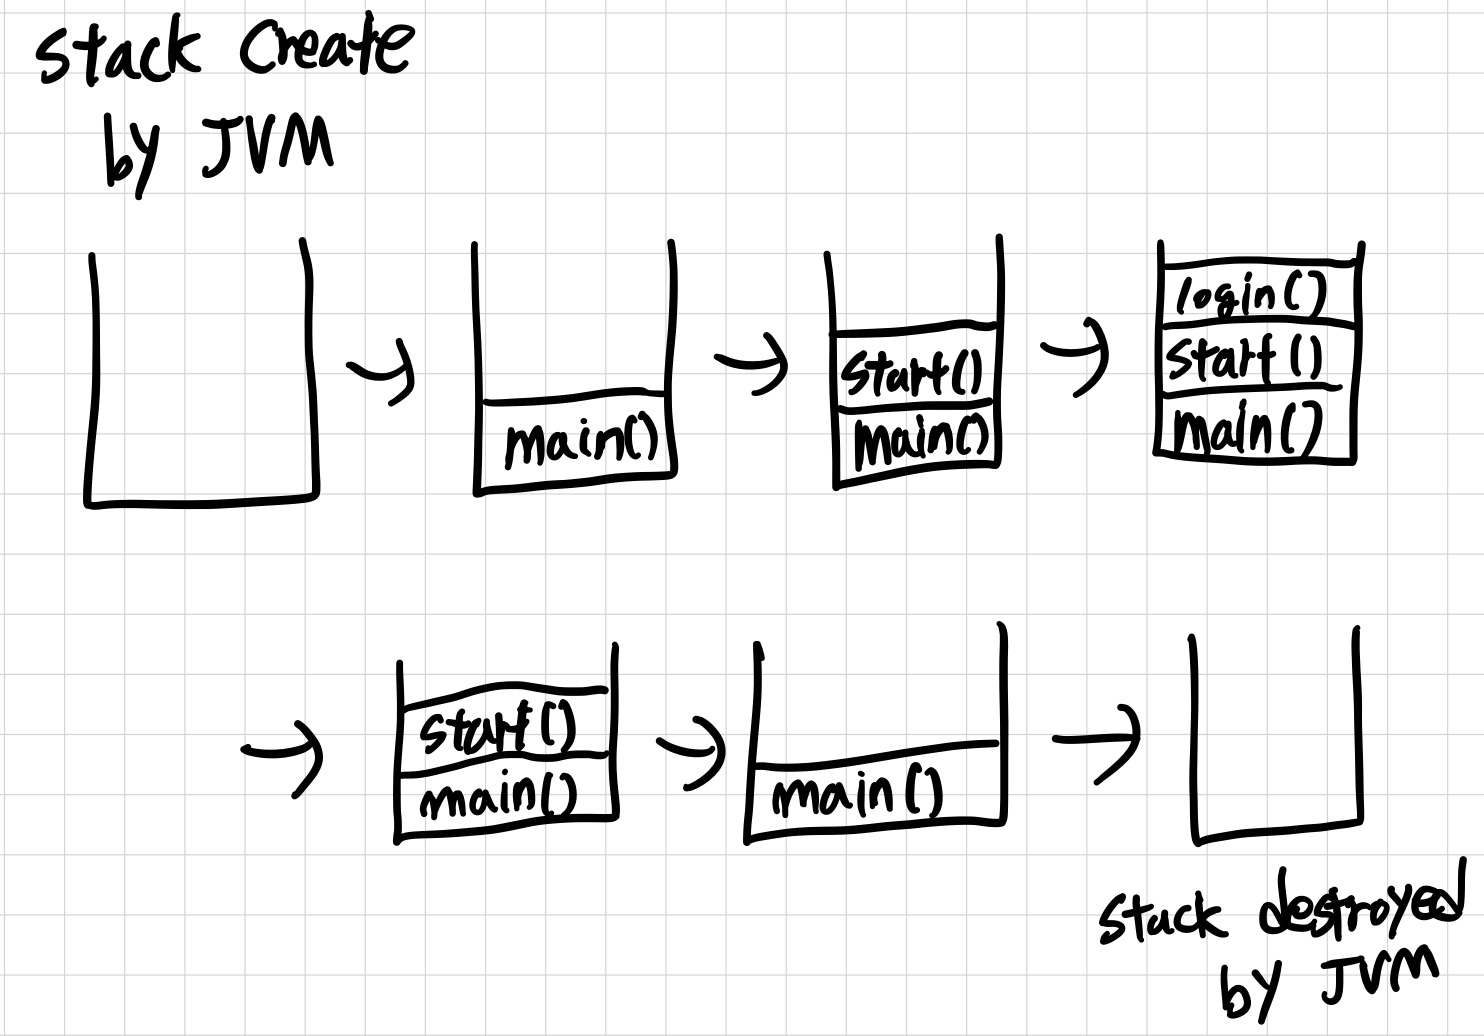 stack create
by JVM
main()
start()
main()
login()
start()
main()
start()
main()
main()
stack destroyed
by JVM